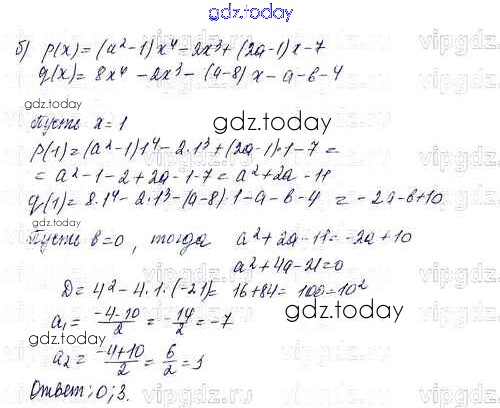 gdz.today
б) p(x)=(a²-1)x⁴-2x³+(2a-1)x-7
q(x)=8x⁴-2x³-(a-8)x-a-b-4
gdz.today
Пусть x=1
gdz.today
p(1)=(a²-1)1⁴-2·1³+(2a-1)·1-7=
=a²-1-2+2a-1-7=a²+2a-11
q(1)=8·1⁴-2·1³-(a-8)·1-a-b-4=-2a-b+10
gdz.today
Пусть b=0, тогда a²+2a-11=-2a+10
a²+4a-21=0
gdz.today
D=4²-4·1·(-21)=16+84=100=10²
a₁=(-4-10)/2=-14/2=-7
gdz.today
a₂=(-4+10)/2=6/2=3
Ответ: 0; 3.
vipgdz.ru